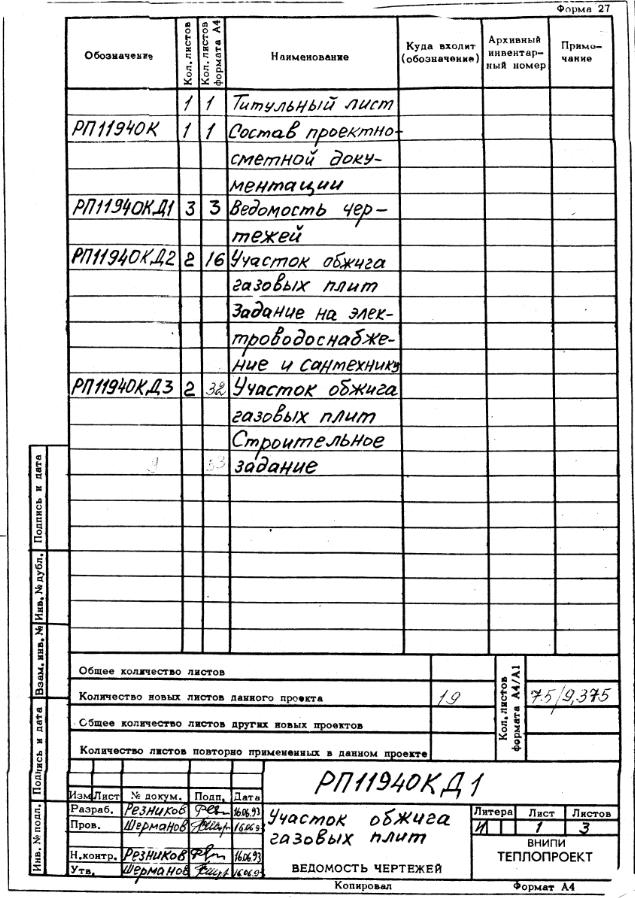 Форма 27
Обозначение Кол. листов Кол. листов формата А4 Наименование Куда входит (обозначение) Архивный инвентарный номер Примечание
1 1 Титульный лист
РП11940К 1 1 Состав проектно-
сметной доку-
ментации
РП11940КД1 3 3 Ведомость чер-
тежей
РП11940КД2 2 16 Участок обжига
газовых плит
Задание на элек-
троводоснабже-
ние и сантехнику
РП11940КД3 2 32 Участок обжига
газовых плит
Строительное
9 53 задание
Подпись и дата
Инв. № дубл.
Взам. инв. №
Подпись и дата
Инв. № подл.
Общее количество листов
Количество новых листов данного проекта 19 Кол. листов формата А4/А1 75/9,375
Общее количество листов других новых проектов
Количество листов повторно примененных в данном проекте
РП11940КД1
Изм Лист № докум. Подп. Дата
Разраб. Резников 16.06.93
Пров. Шерманов 16.06.93
Н.контр. Резников 16.06.93
Утв. Шерманов 16.06.93
Участок обжига
газовых плит
ВЕДОМОСТЬ ЧЕРТЕЖЕЙ
Литера Лист Листов
И 1 3
ВНИПИ
ТЕПЛОПРОЕКТ
Копировал Формат А4